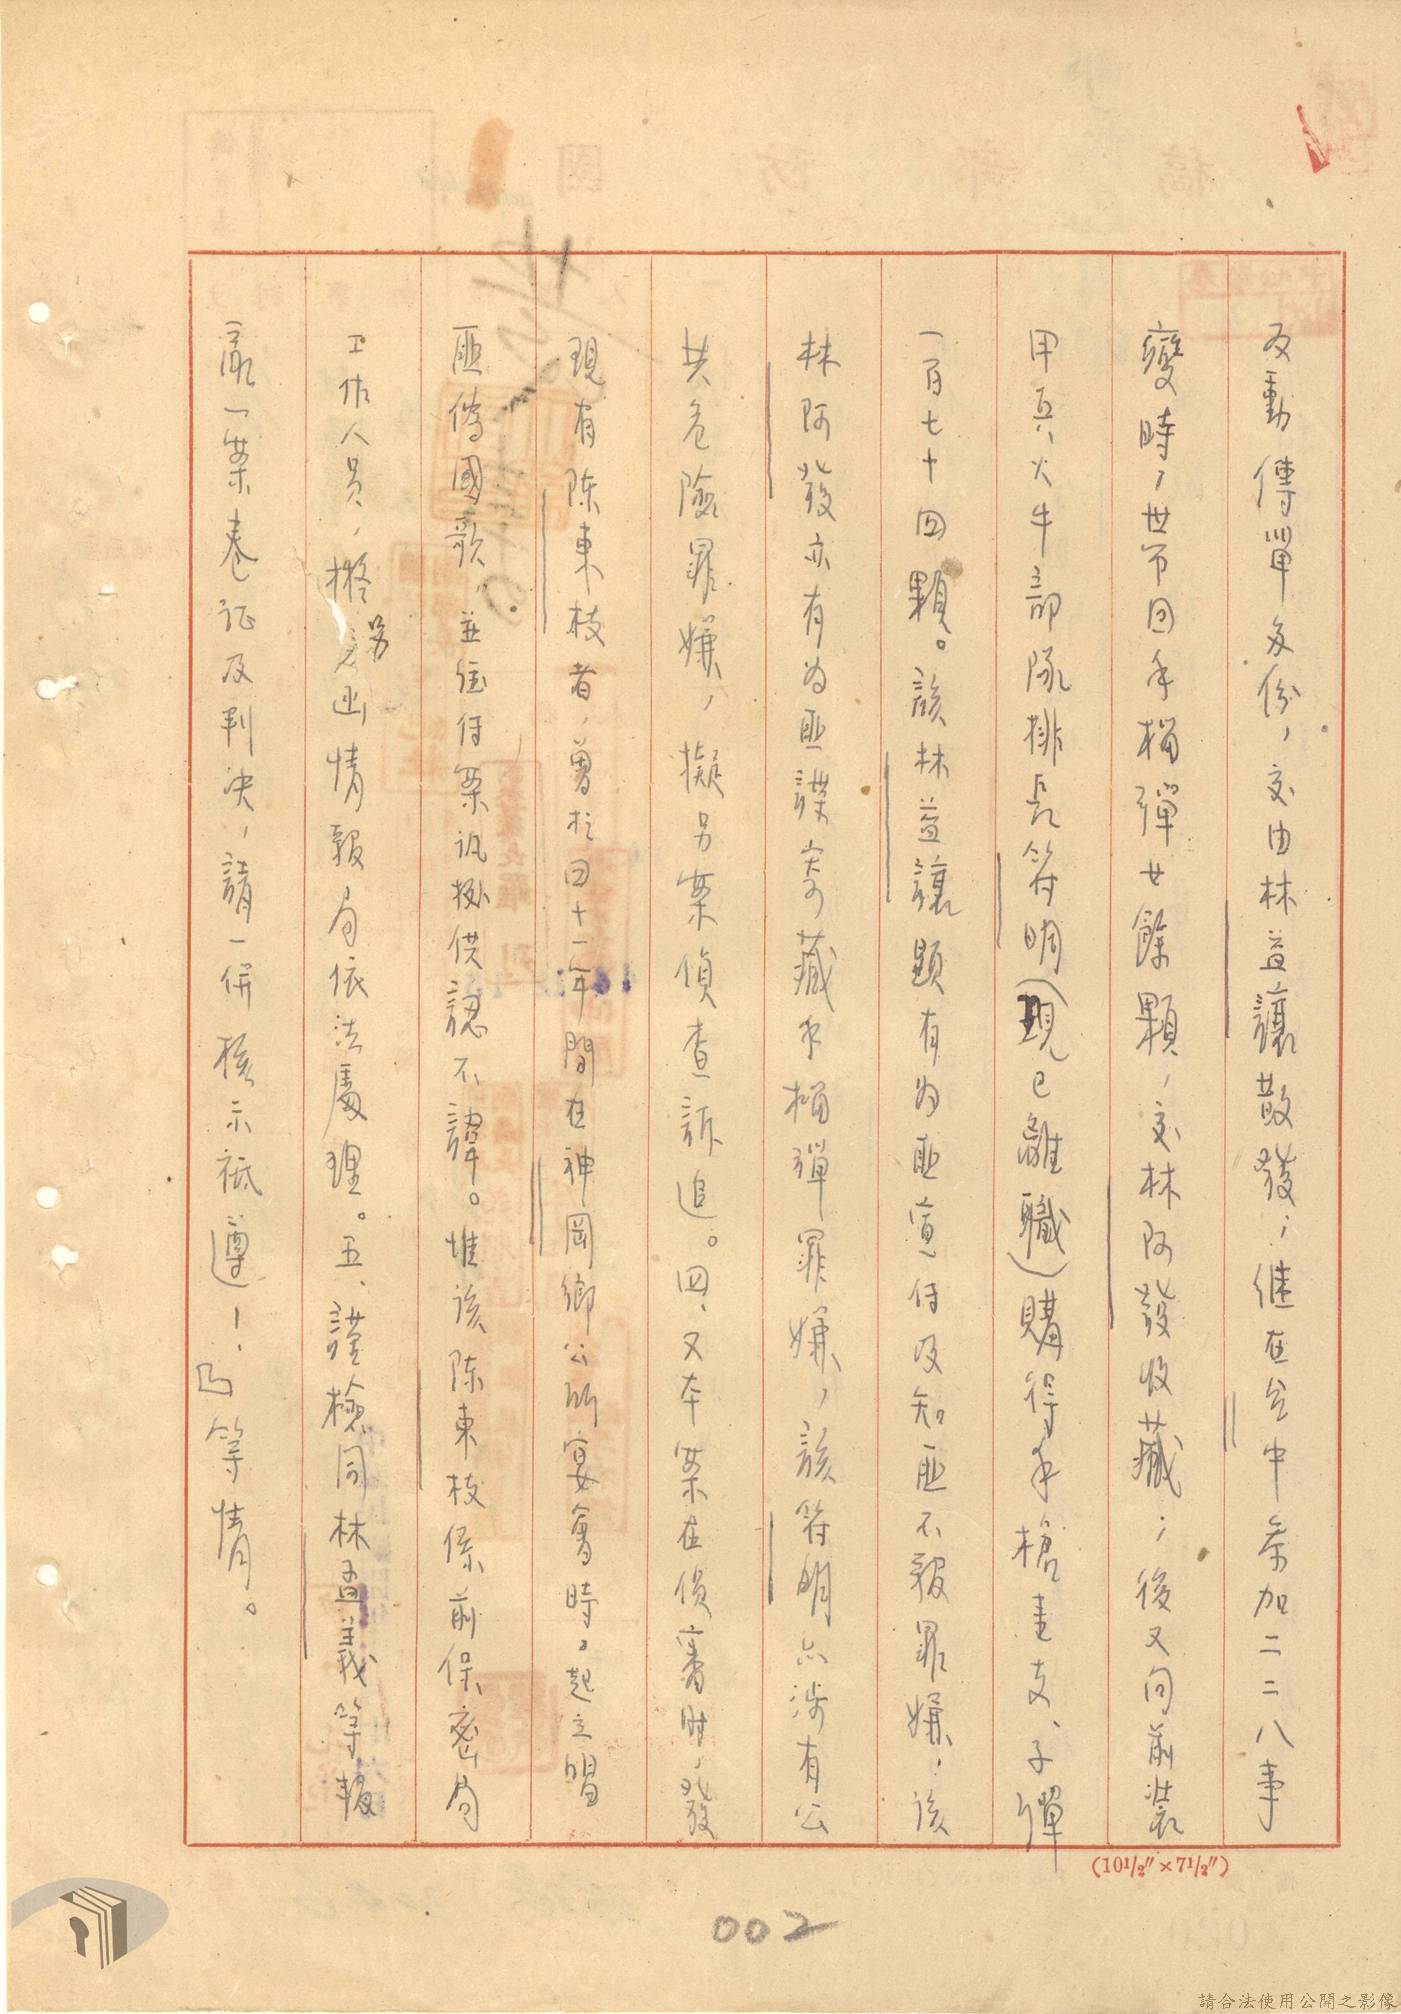 反動傳單多份，交由林益讓散發；继在台中参加二二八事
變時，世帶回手榴彈廿餘顆，交林阿發收藏；後又向前裝
甲兵火牛部隊排長符明（現已離職）購得手槍壹支、子彈
一百七十四顆。該林益讓顯有为匪宣傳及知匪不報罪嫌，该
林阿發亦有为匪諜寄藏手榴彈罪嫌，該符明亦涉有公
共危險罪嫌，擬另案偵查訴追。四、又本案在偵審时，發
現有陈東枝者，曾於四十一年間在神岡鄉公所宴會時，起立唱
匪偽國歌，並經傳案訊据供認不諱。惟该陈東枝係前保密局
工作人員，擬另函情報局依法處理。五、謹檢同林孟義等叛
亂一案卷证及判决，請一併核示祗遵！」等情。
(10½″×7½″)
002
請合法使用公開之影像